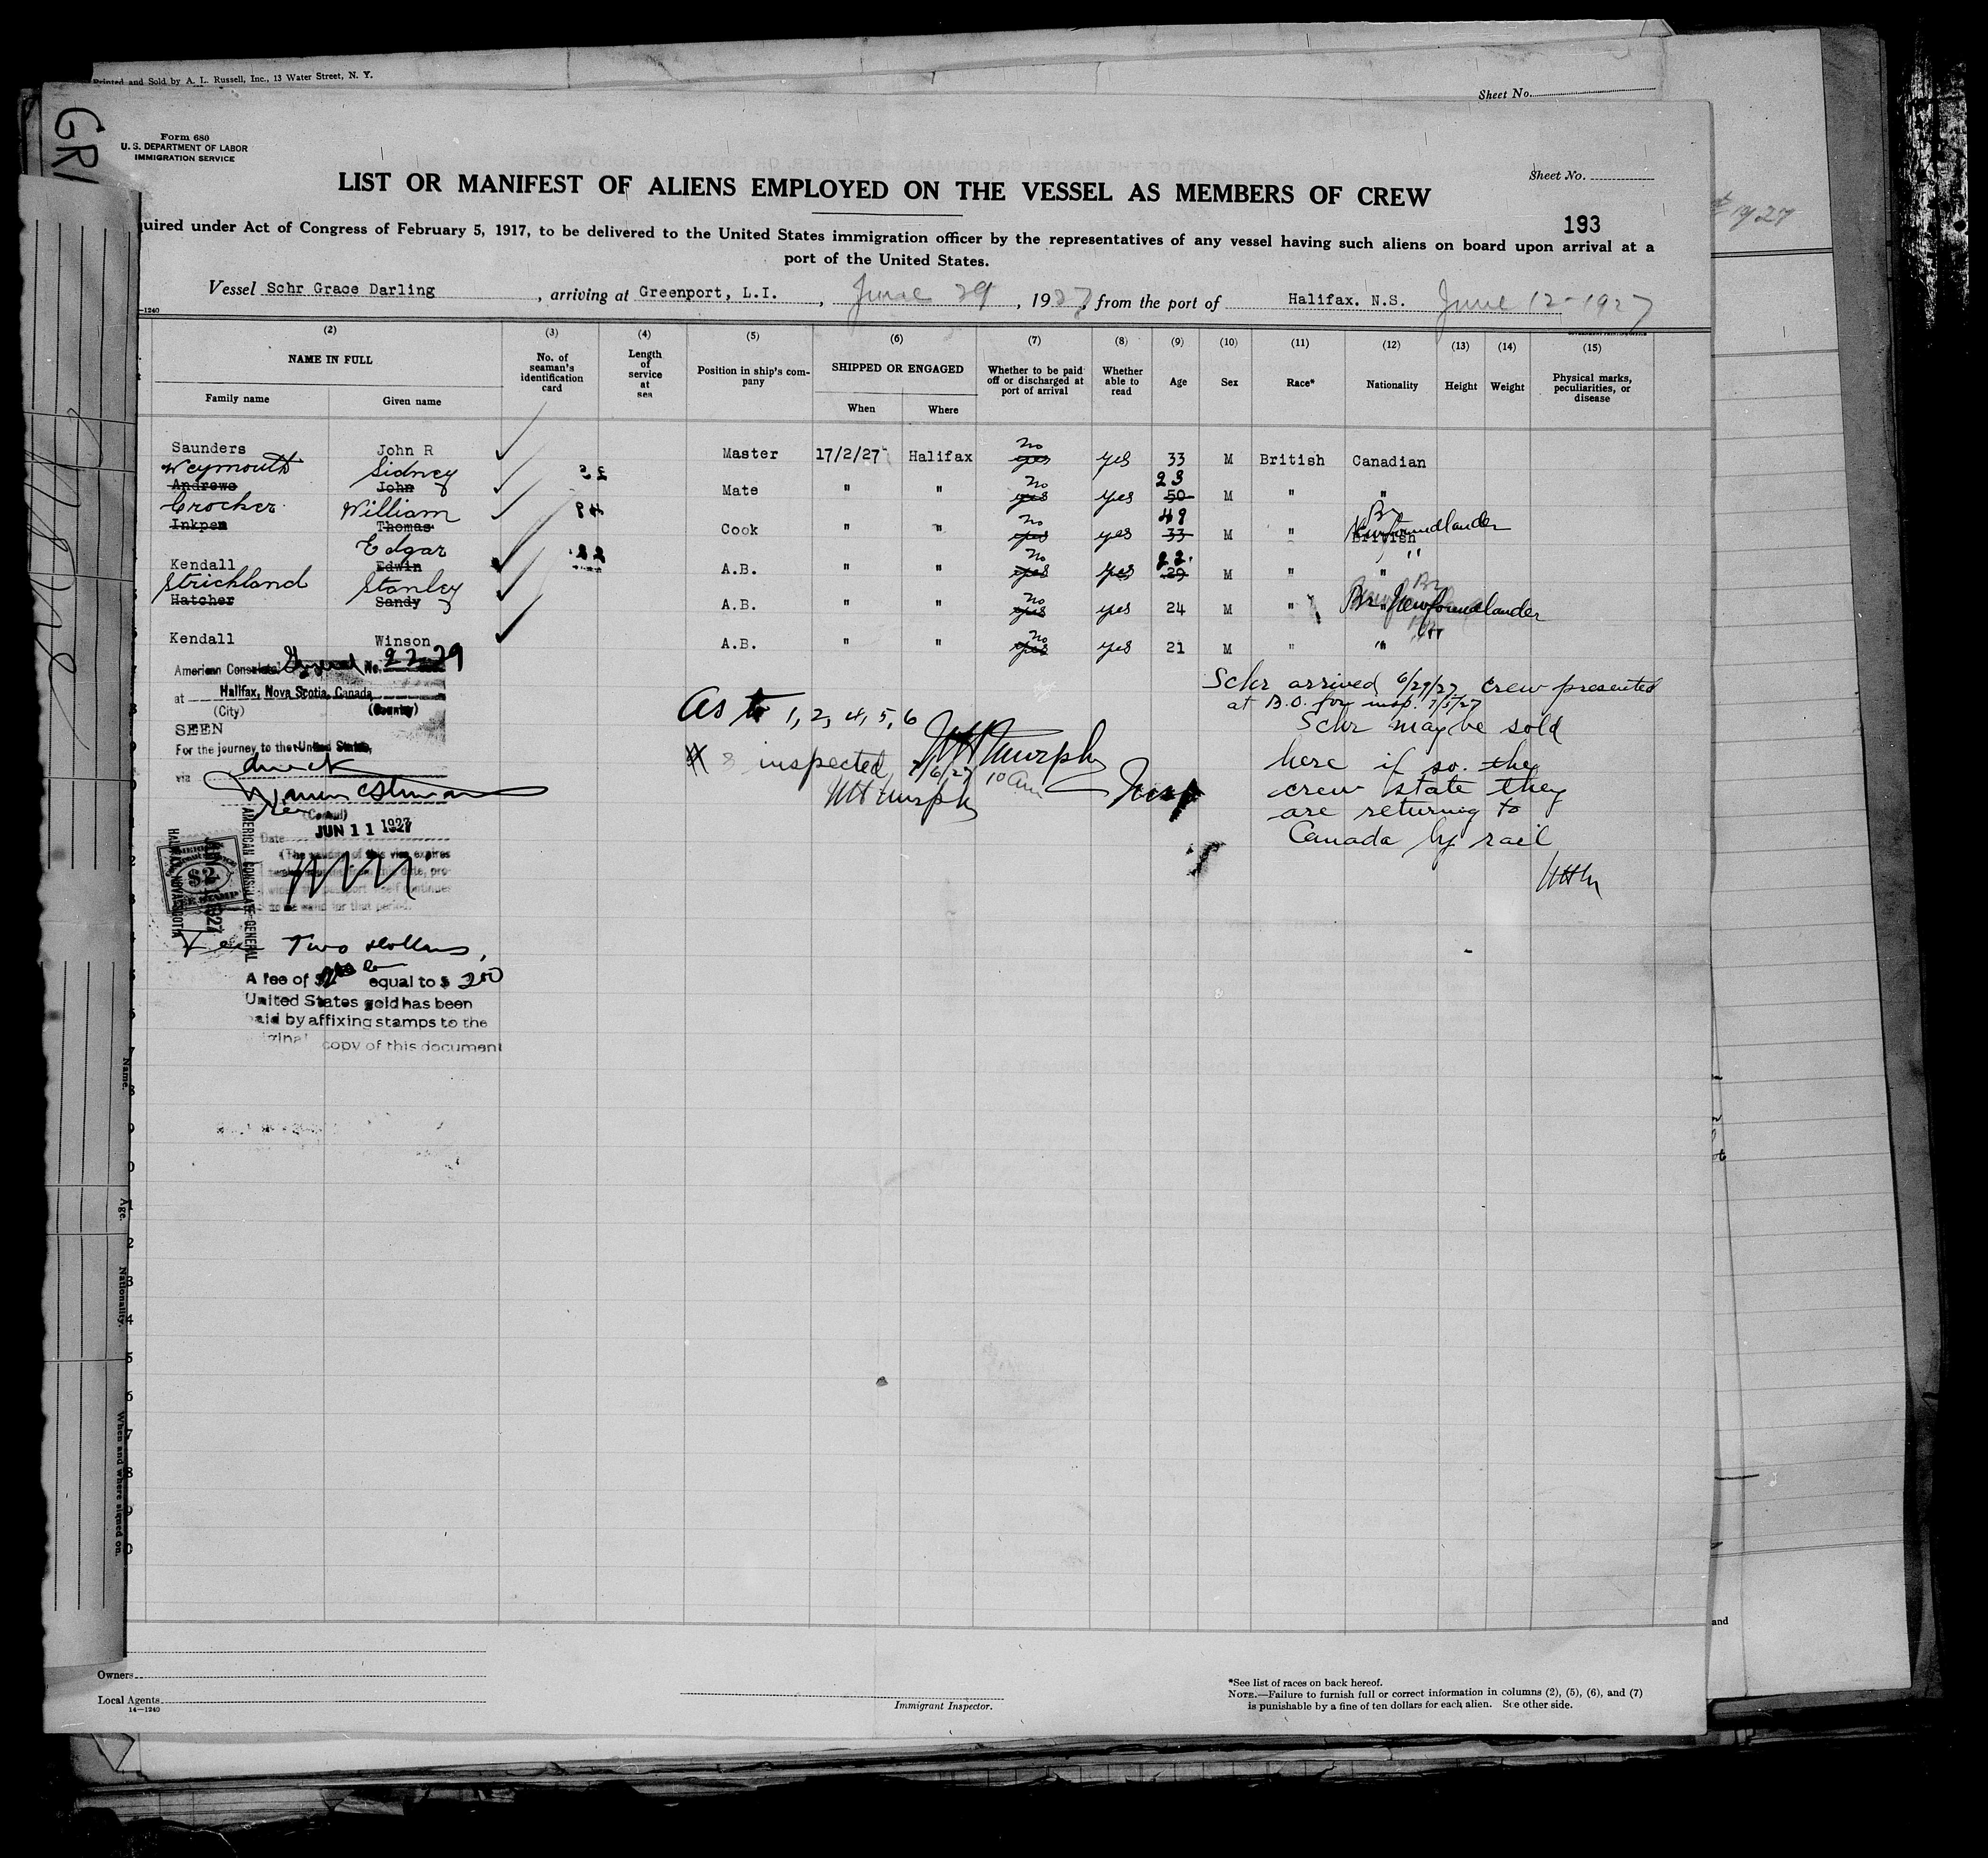 Printed and Sold by A. L. Russell, Inc., 13 Water Street, N. Y.
Sheet No.
GR
Form 680
U. S. DEPARTMENT OF LABOR
IMMIGRATION SERVICE
Sheet No.
LIST OR MANIFEST OF ALIENS EMPLOYED ON THE VESSEL AS MEMBERS OF CREW
193
1927
quired under Act of Congress of February 5, 1917, to be delivered to the United States immigration officer by the representatives of any vessel having such aliens on board upon arrival at a
port of the United States.
Vessel Schr Grace Darling , arriving at Greenport, L.I. , June 29 , 1927, from the port of Halifax. N.S. June 12-1927
—1240
(2) (3) (4) (5) (6) (7) (8) (9) (10) (11) (12) (13) (14) (15)
NAME IN FULL
Family name Given name
No. of seaman's identification card
Length of service at sea
Position in ship's company
SHIPPED OR ENGAGED
When Where
Whether to be paid off or discharged at port of arrival
Whether able to read
Age
Sex
Race*
Nationality
Height
Weight
Physical marks, peculiarities, or disease
Saunders John R Master 17/2/27 Halifax no yes yes 33 M British Canadian
Weymouth Sidney 23
Andrews John Mate " " no yes yes 50 M " "
Crocker William 49 Br Newfoundlander
Inkpen Thomas Cook " " no yes yes 33 M " British
Edgar 22
Kendall Edwin A.B. " " no yes yes 29 M " "
Strickland Stanley Br Newfoundlander
Hatcher Sandy A.B. " " no yes yes 24 M " "
Kendall Winson A.B. " " no yes yes 21 M " "
American Consulate General No. 2229
at Halifax, Nova Scotia, Canada
(City) (Country)
SEEN
For the journey to the United States,
via direct
(Consul)
Date JUN 11 1927
(The validity of this visa expires
AMERICAN CONSULATE-GENERAL
HALIFAX, NOVA SCOTIA
$2
Fee Two dollars,
A fee of equal to $ 2.00
United States gold has been
paid by affixing stamps to the
original copy of this document
As to 1, 2, 4, 5, 6
inspected 7/6/27 10 am
W H Murphy
W H Murphy
Insp
Schr arrived 6/29/27 Crew presented
at B.O. for insp. 7/5/27
Schr may be sold
here if so. the
crew state they
are returning to
Canada by rail
WHM
Name.
Age.
Nationality.
When and where signed on.
and
Owners
Local Agents
14—1240
Immigrant Inspector.
*See list of races on back hereof.
NOTE.—Failure to furnish full or correct information in columns (2), (5), (6), and (7)
is punishable by a fine of ten dollars for each alien. See other side.